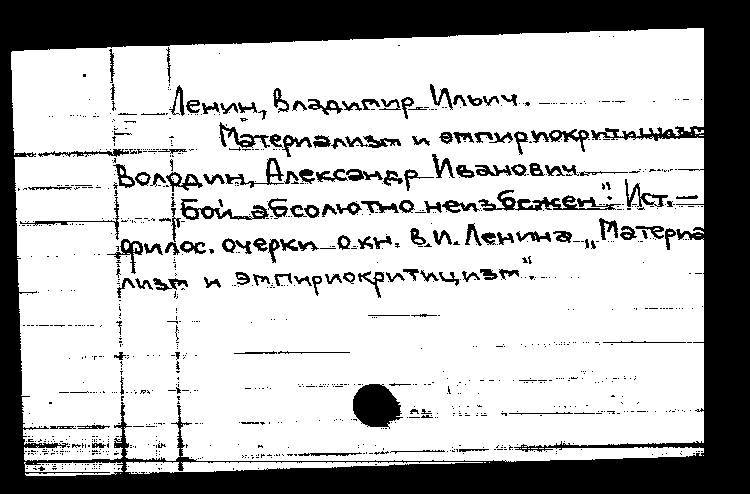 Ленин, Владимир Ильич.
Материализм и эмпириокритицизм
Володин, Александр Иванович.
"Бой абсолютно неизбежен": Ист.—
филос. очерки о кн. В.И. Ленина „Материа
лизм и эмпириокритицизм".